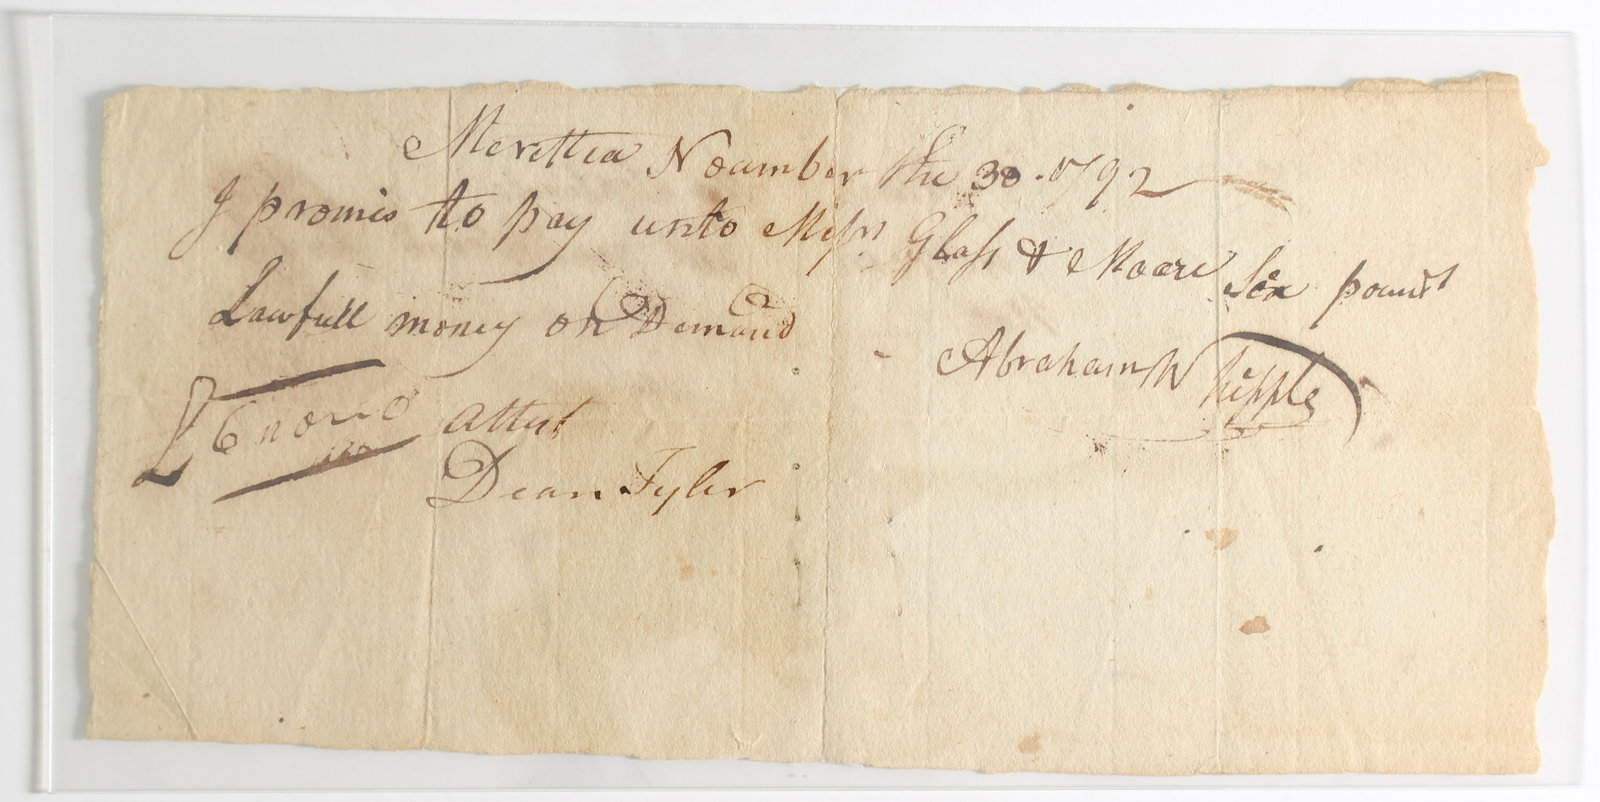 Merettea Noumber the 30. 1792
I promis to pay unto Messrs Glass & Moore Six pound
Lawfull money on Demand
Abraham Whipple
£6 attest
Dean Tyler